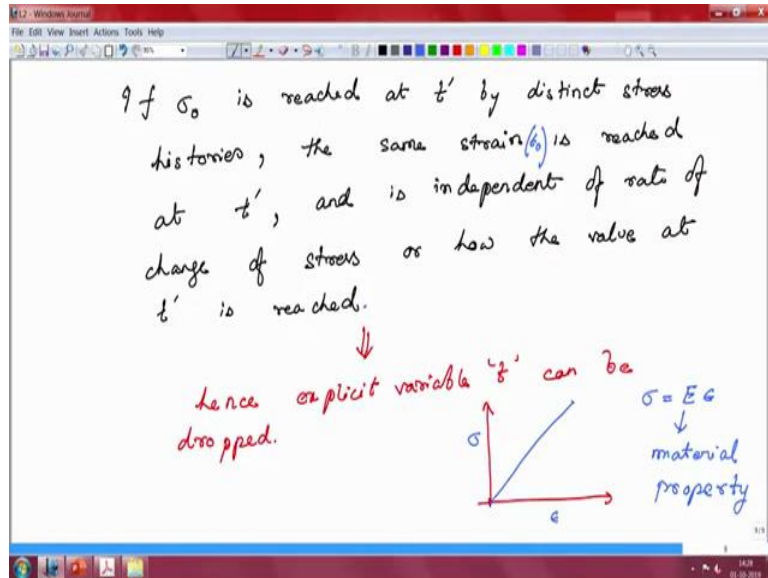 L2 - Windows Journal
File Edit View Insert Actions Tools Help
If σ₀ is reached at t' by distinct stress
histories, the same strain (ϵ₀) is reached
at t', and is independent of rate of
change of stress or how the value at
t' is reached.
⇓
hence explicit variable 't' can be
dropped.
σ = E ϵ
↓
material
property
σ
ϵ
9/9
14:28
01-10-2019